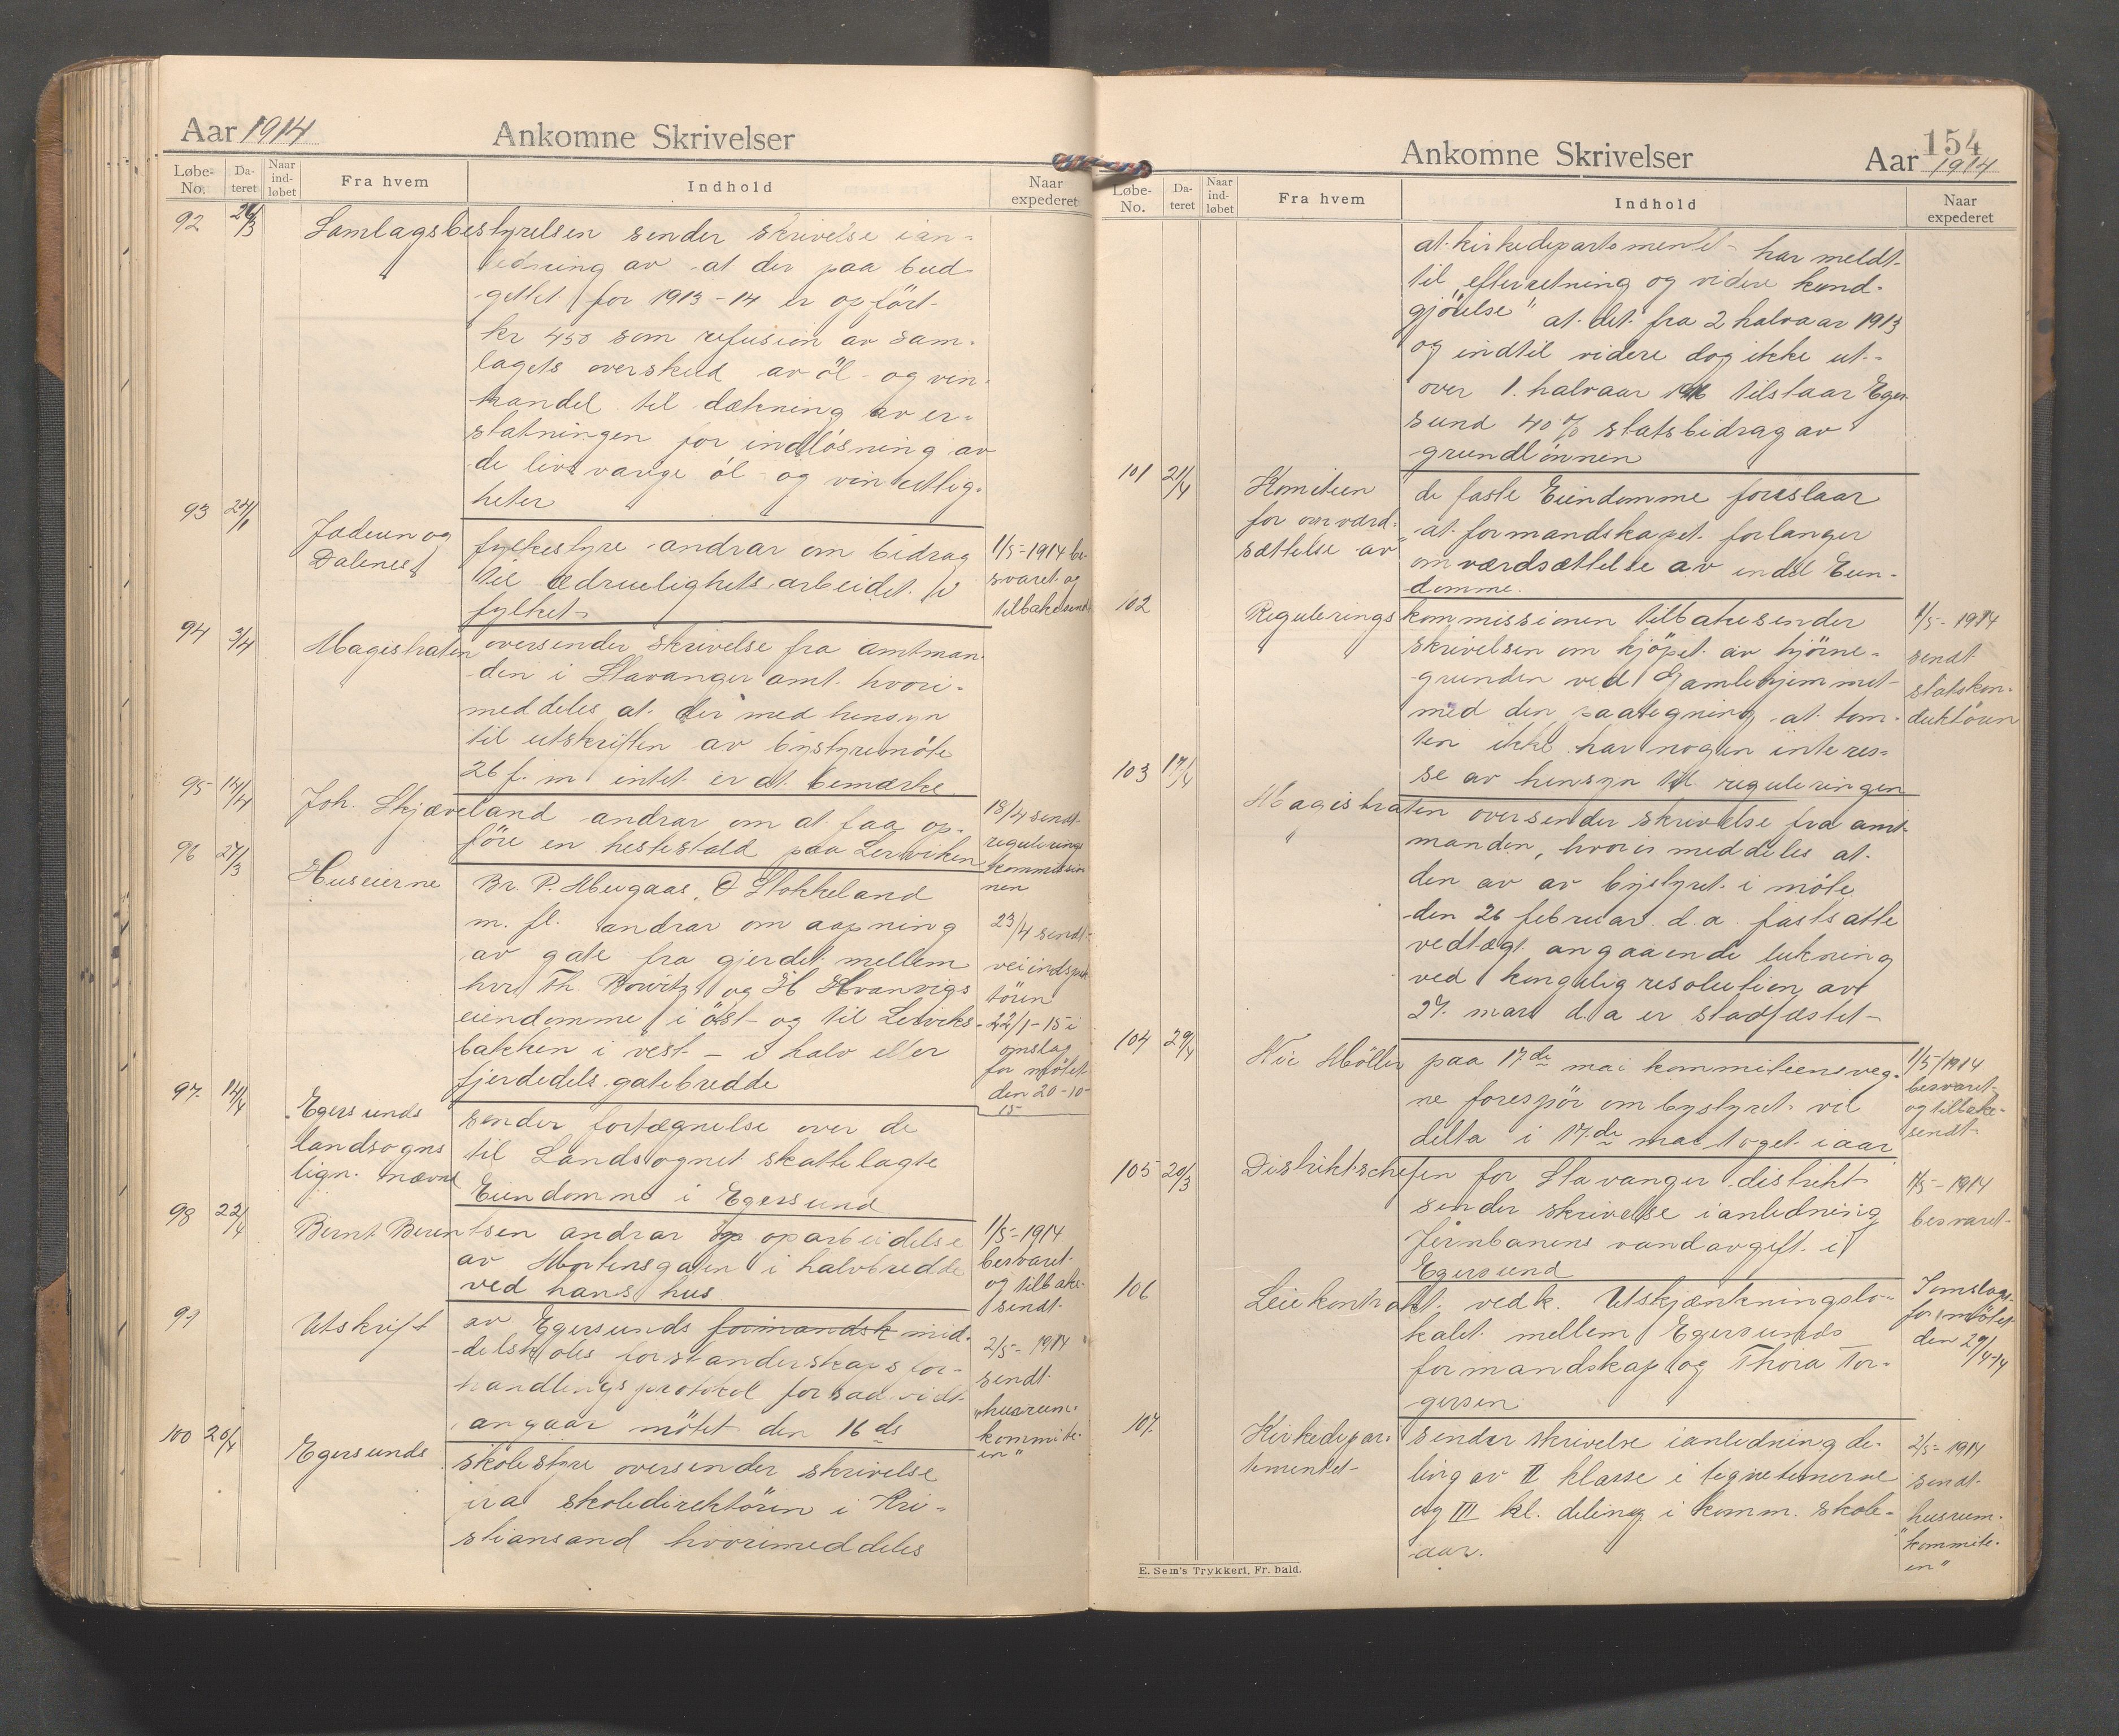 Aar 1914
Ankomne Skrivelser
Løbe-No.
Da-teret
Naar ind-løbet
Fra hvem
Indhold
Naar expederet
92 26/3 Samlagsbestyrelsen sender skrivelse i an-
ledning av at der paa bud-
gettet for 1913-14 er opført
kr 450 som refusion av sam-
lagets overskud av øl- og vin-
handel til dækning av er-
statningen for indløsning av
de livsvarige øl- og vinrettig-
heter
93 Jæderen og fylkestyre andrar om bidrag 1/5-1914 be-
Dalenes til ædruelighets arbeidet i svaret og
fylket tilbakesendt
94 3/4 Magistraten oversender skrivelse fra amtman-
den i Stavanger amt hvori
meddeles at der med hensyn
til utskriften av bystyremøte
26 f. m. intet er at bemærke
95 14/4 Joh. Skjæveland andrar om at faa op- 18/4 sendt
føre en hestestald paa Lerviken regulerings
kommissio
nen
96 27/3 Huseierne Br. P. Meugaas, O Stokkeland
m. fl. andrar om aapning 23/4 sendt
av gate fra gjerdet mellem veiindspek
hrr Th. og H Hvanvigs tøren
eiendomme i øst og til Lerviks- 22/1-15 i
bakken i vest - i halv eller omslag
fjerdedels gatebredde for møtet
den 20-10-
15
97 14/4 Egersunds sender fortegnelse over de
landsogns til Landsognet skattelagte
lign. nævnd Eiendomme i Egersund
98 22/4 Bernt Berentsen andrar op oparbeidelse 1/5-1914
av Mortensgaten i halvbredde besvaret
ved hans hus og tilbake-
sendt
99 Utskrift av Egersunds formandsk mid- 2/5-1914
delskoles forstanderskaps for- sendt
handlingsprotokol forsaavidt "husrum-
angaar møtet den 16 ds kommite-
en"
100 20/4 Egersunds skolestyre oversender skrivelse
fra skoledirektøren i Kri-
stiansand hvori meddeles
154
Ankomne Skrivelser
Aar 1914
Løbe-No.
Da-teret
Naar ind-løbet
Fra hvem
Indhold
Naar expederet
at kirkedepartementet har meldt
til "efterretning og videre kund-
gjørelse" at det fra 2 halvaar 1913
og indtil videre dog ikke ut-
over 1. halvaar 1916 tilstaar Eger-
sund 40 % statsbidrag av
grundlønnen
101 21/4 Komiteen de faste Eiendomme foreslaar
for omværd- at formandskapet forlanger
sættelse av omværdsættelse av endel Eien-
domme.
102 Reguleringskommissionen tilbakesender 1/5-1914
skrivelsen om kjøpet av hjørne- sendt
grunden ved Gamlehjemmet statskon-
med den paategning at tom- duktøren
ten ikke har nogen interes-
se av hensyn til reguleringen
103 17/4 Magistraten oversender skrivelse fra amt-
manden, hvori meddeles at
den av av bystyret i møte
den 26 februar d. a. fastsatte
vedtægt angaaende lukning
ved kongelig resolution av
27. mars d. a er stadfæstet
104 29/4 Nic Møller paa 17de mai kommiteensveg- 1/5/1914
ne forespør om bystyret vil besvaret
delta i 17.de mai toget iaar og tilbake-
sendt
105 20/3 Distriktschefen for Stavanger distrikt 1/5-1914
sender skrivelse i anledning besvaret
Jernbanens vandavgift i
Egersund
106 Leiekontrakt vedk. Utskjænkningslo- I omslag
kalet mellem Egersunds for møtet
formandskap og Thora Tor- den 29/4-14
gersen
107. Kirkedepar- sender skrivelse i anledning de- 2/5-1914
tementet ling av II klasse i tegnetimerne sendt
og III kl. deling i komm. skole- husrum-
aar. "kommite-
en"
E. Sem's Trykkeri, Fr. hald.